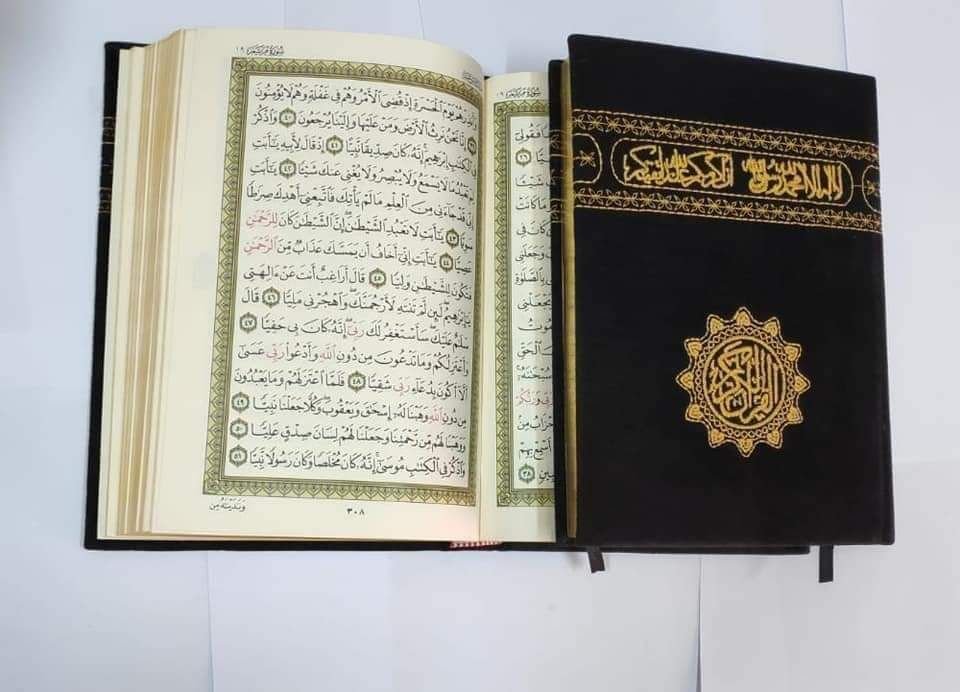 سُورَةُ مَرْيَمَ ١٩
وَأَنذِرْهُمْ يَوْمَ ٱلْحَسْرَةِ إِذْ قُضِىَ ٱلْأَمْرُ وَهُمْ فِى غَفْلَةٍ وَهُمْ لَا يُؤْمِنُونَ
٣٩ إِنَّا نَحْنُ نَرِثُ ٱلْأَرْضَ وَمَنْ عَلَيْهَا وَإِلَيْنَا يُرْجَعُونَ ٤٠ وَٱذْكُرْ
فِى ٱلْكِتَٰبِ إِبْرَٰهِيمَ إِنَّهُۥ كَانَ صِدِّيقًا نَّبِيًّا ٤١ إِذْ قَالَ لِأَبِيهِ يَٰٓأَبَتِ
لِمَ تَعْبُدُ مَا لَا يَسْمَعُ وَلَا يُبْصِرُ وَلَا يُغْنِى عَنكَ شَيْـًٔا ٤٢ يَٰٓأَبَتِ
إِنِّى قَدْ جَآءَنِى مِنَ ٱلْعِلْمِ مَا لَمْ يَأْتِكَ فَٱتَّبِعْنِىٓ أَهْدِكَ صِرَٰطًا
سَوِيًّا ٤٣ يَٰٓأَبَتِ لَا تَعْبُدِ ٱلشَّيْطَٰنَ إِنَّ ٱلشَّيْطَٰنَ كَانَ لِلرَّحْمَٰنِ
عَصِيًّا ٤٤ يَٰٓأَبَتِ إِنِّىٓ أَخَافُ أَن يَمَسَّكَ عَذَابٌ مِّنَ ٱلرَّحْمَٰنِ
فَتَكُونَ لِلشَّيْطَٰنِ وَلِيًّا ٤٥ قَالَ أَرَاغِبٌ أَنتَ عَنْ ءَالِهَتِى
يَٰٓإِبْرَٰهِيمُ لَئِن لَّمْ تَنتَهِ لَأَرْجُمَنَّكَ وَٱهْجُرْنِى مَلِيًّا ٤٦ قَالَ
سَلَٰمٌ عَلَيْكَ سَأَسْتَغْفِرُ لَكَ رَبِّىٓ إِنَّهُۥ كَانَ بِى حَفِيًّا ٤٧
وَأَعْتَزِلُكُمْ وَمَا تَدْعُونَ مِن دُونِ ٱللَّهِ وَأَدْعُوا۟ رَبِّى عَسَىٰٓ
أَلَّآ أَكُونَ بِدُعَآءِ رَبِّى شَقِيًّا ٤٨ فَلَمَّا ٱعْتَزَلَهُمْ وَمَا يَعْبُدُونَ
مِن دُونِ ٱللَّهِ وَهَبْنَا لَهُۥٓ إِسْحَٰقَ وَيَعْقُوبَ وَكُلًّا جَعَلْنَا نَبِيًّا ٤٩
وَوَهَبْنَا لَهُم مِّن رَّحْمَتِنَا وَجَعَلْنَا لَهُمْ لِسَانَ صِدْقٍ عَلِيًّا ٥٠
وَٱذْكُرْ فِى ٱلْكِتَٰبِ مُوسَىٰٓ إِنَّهُۥ كَانَ مُخْلَصًا وَكَانَ رَسُولًا نَّبِيًّا ٥١
٣٠٨
وَنَٰدَيْنَٰهُ مِن
سُورَةُ مَرْيَمَ ١٩
فَقُولِىٓ
٢٦
شَيْـًٔا
مَا كَانَتْ
كَانَ فِى
وَجَعَلَنِى
بِٱلصَّلَوٰةِ
يَجْعَلْنِى
ٱلْحَقِّ
سُبْحَٰنَهُۥٓ
رَبِّى وَرَبُّكُمْ
أَسْمِعْ بِهِمْ
٣٨
لا إله إلا الله محمد رسول الله
القرآن الكريم